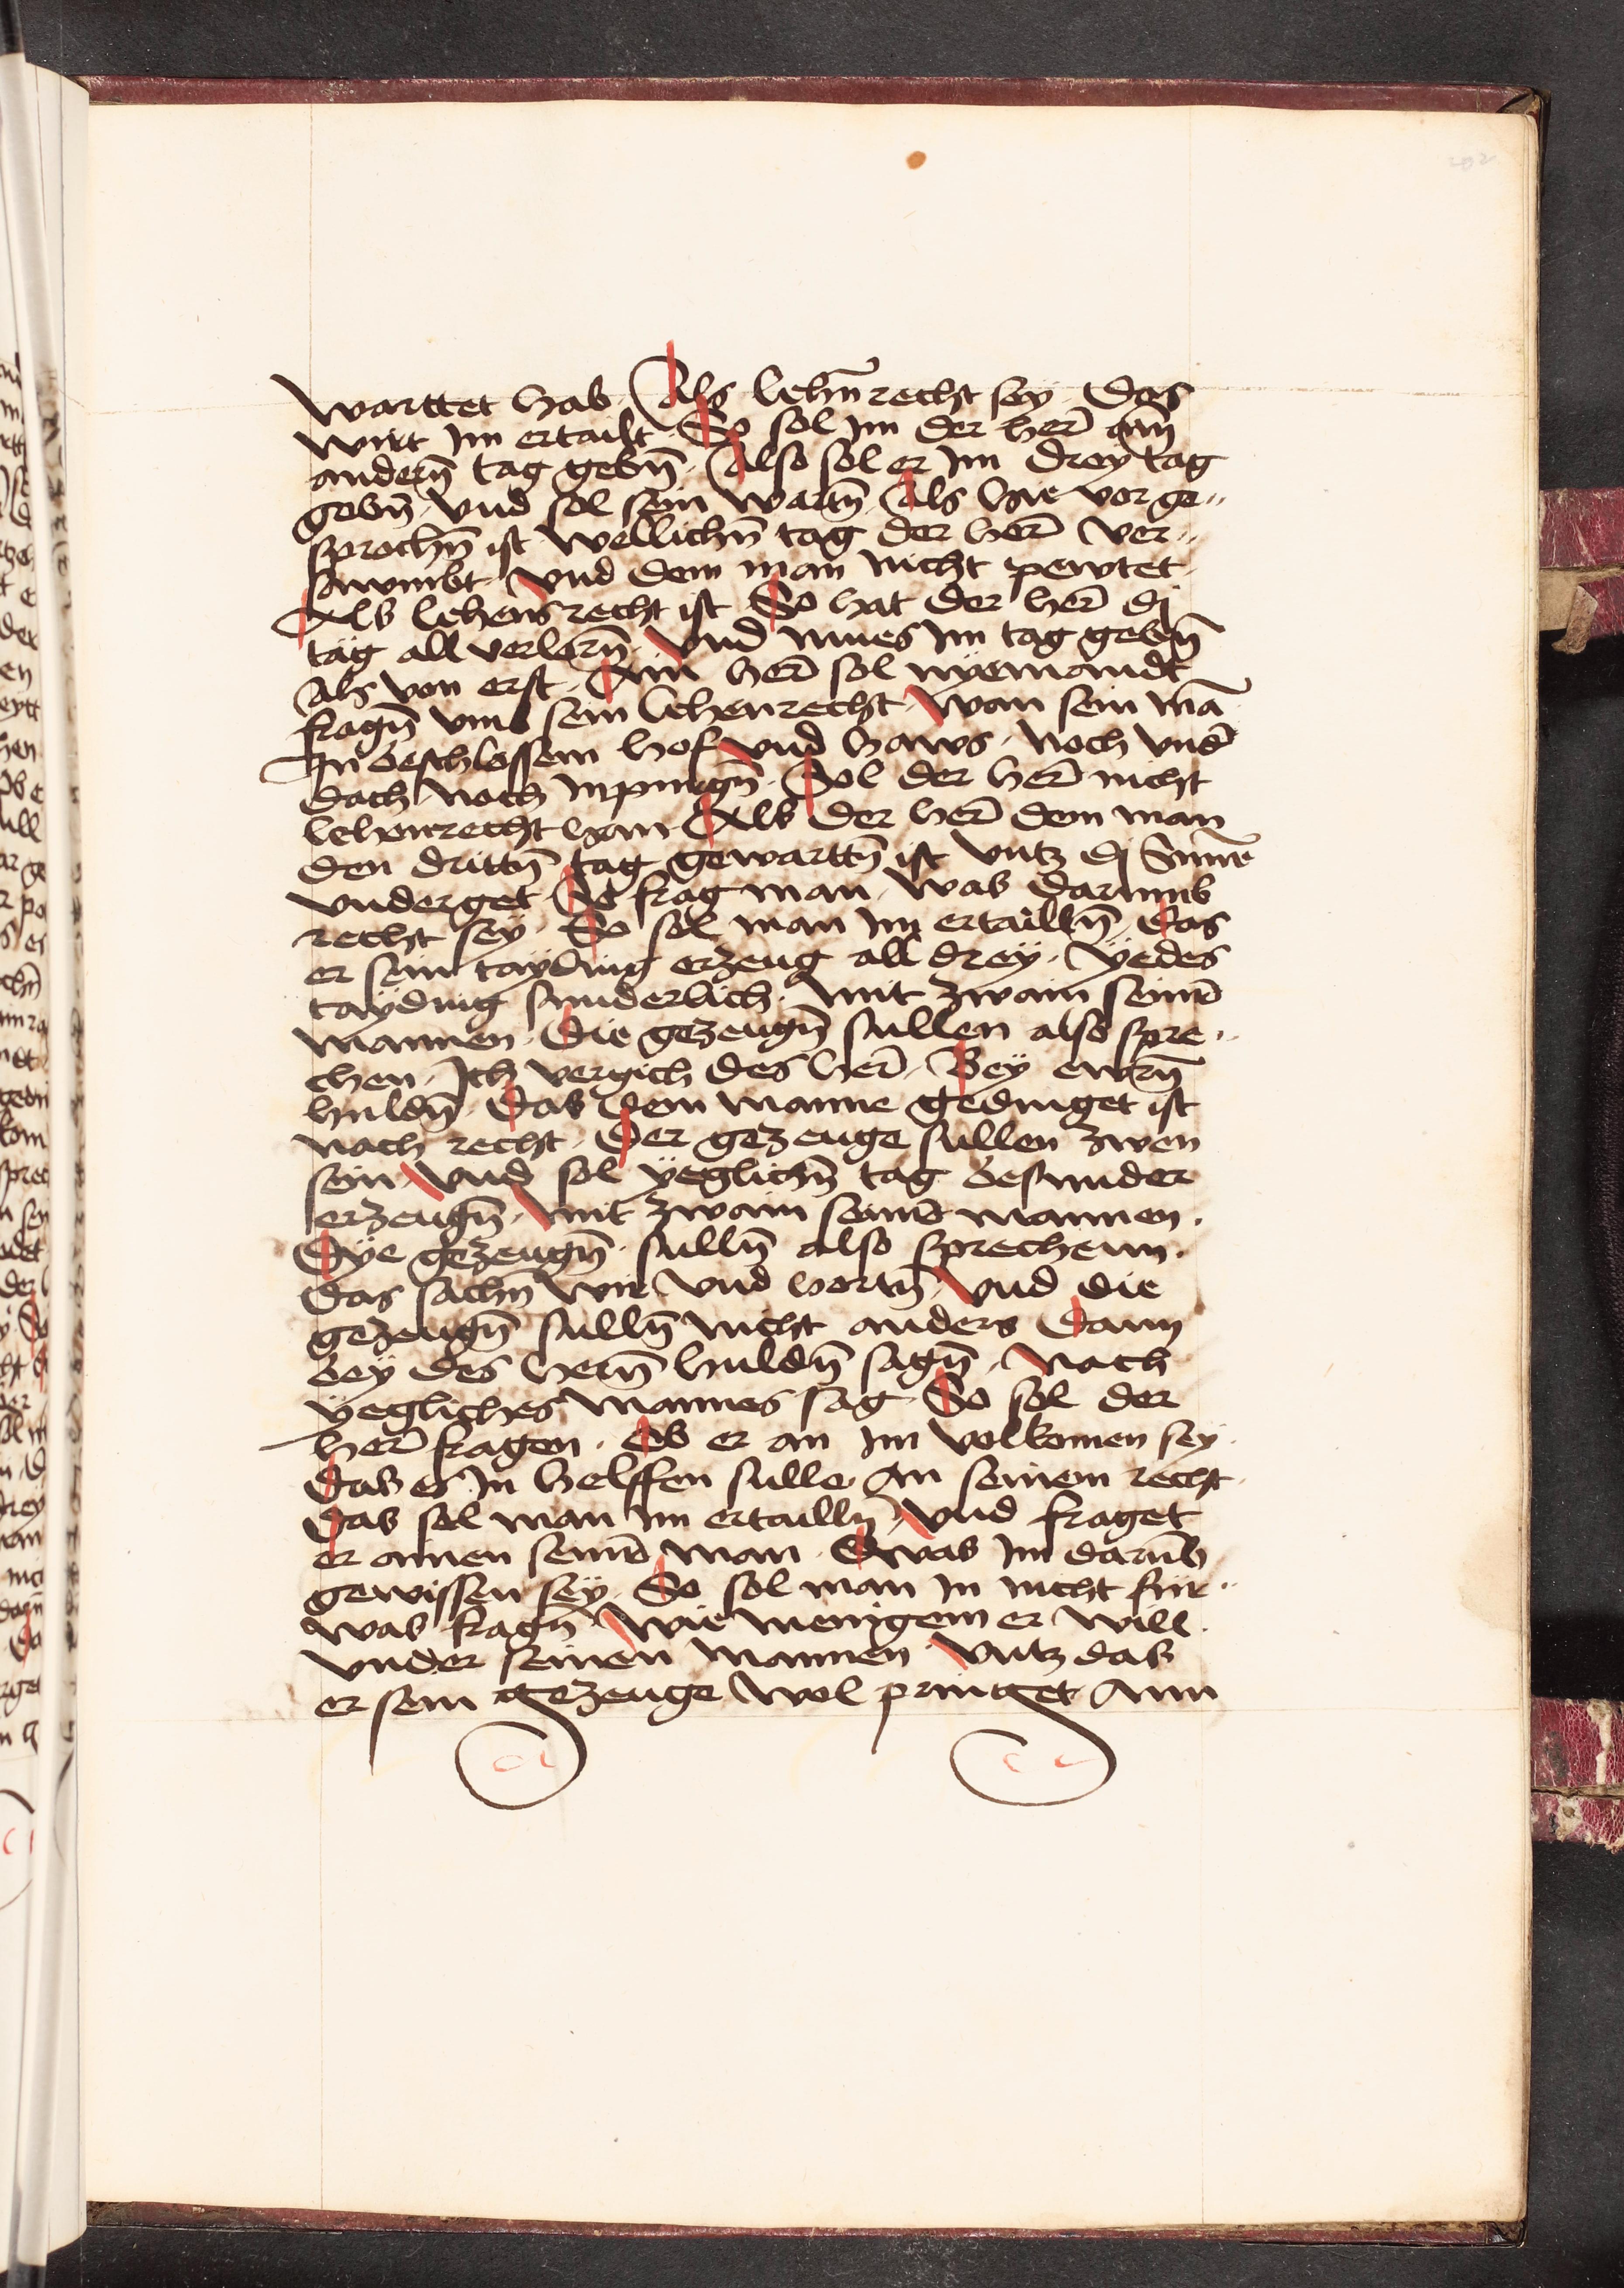 warttet hab. Als lehñrecht sey. Das
wirt im ertailt. So sol im der her̄ ain̄
andern̄ tag gebn̄. Also sol er im drey tag
gebn̄. vnd sol sein wartn̄. Als hie vor ge„
sprochn̄ ist wellichn̄ tag der her̄ ver„
sawmbt. vnd dem man nicht pewtet.
Als lehens recht ist. So hat der her̄ dj
täg all verlorn̄. vnd mues im tag gebn̄
als von erst. Ain her̄ sol nyemandt
fragn̄ vmb sein lehenrecht. wan sein mā
In beschlossem hof vnd haws. noch vnd̄
dach noch inpurgn̄. Sol der her̄ nicht
lehenrecht han. Als der her̄ dem man
den drittn̄ tag gewarttn̄ ist vntz dj Sunne
vnderget. So frag man. was darumb
recht sey. So sol man im ertailln̄. das
er sein tayding erzeug all drey. yedes
tayding sunderlich. mit zwain seinn̄
mannen. Die gezeugn̄ sullen also spre„
chen. Ich vergich des her̄. Bey ewrn̄
huldn̄. Das dem manne gedinget ist
nach recht. Der gezeuge sullen zwen
sein. vnd sol yeglichn̄ tag besunder
erzeugn̄. mit zwain seinn̄ mannen.
Dye gezeugn̄. sulln̄ also sprechenn.
Das sachn̄ wir vnd hortn̄. vnd die
gezeugn̄ sulln̄ nicht anders dann
bey des hern̄ huldn̄ sagn̄. Nach
yegliches mannes sag. So sol der
her̄ fragen. Ob er an im volkomen sey.
Das er in helffen sulle. An seinem recht.
Das sol man im ertailln̄. vnd fraget
er ainen seinn̄ man. Was im darūb
gewissen sey. So sol man in nicht für„
was fragn̄. Wie menigem er will.
vnder seinen mannen. vntz das
er sein gezeuge wol pringet. Ann